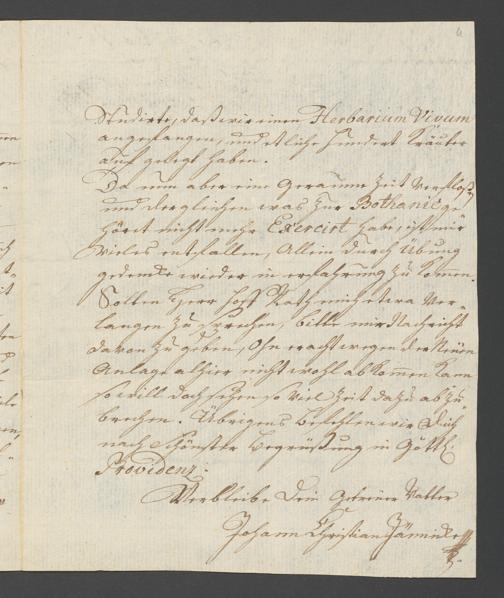 Studirte, daß wir einen Herbarium Vivum
angefangen, und etliche hundert Kräuter
auf gelegt haben.
Da nun aber eine geraume Zeit verfloß,
und dergleichen was zur Bothanic ge
höret nicht mehr Exercirt habe, ist mir
vieles entfallen, Allein durch Übung
gedencke wieder in erfahrung zu kommen.
Solten Herr Hoff Rath mich etwa ver-
langen zu sprechen, bitte mir Nachricht
davon zu geben, Ohneracht wegen der Neuen
Anlage alhier nicht wohl abkommen kann
so will doch sehen so viel Zeit dazu ab zu
brechen. Übrigens befehlen wir Dich
nach schönster begrüßung in Göttl.
Providenz.
Verbleibe Dein Getreuer Vatter
Johann Christian